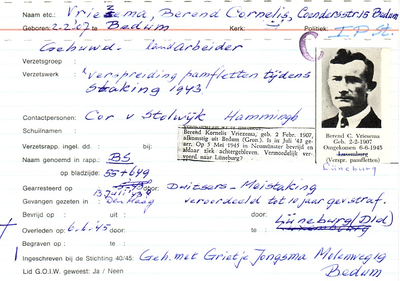 Naam etc.: Vriezema, Berend Cornelis, Coendersstr 15 Bedum
Geboren: 2-2-'07 te Bedum Kerk: Politiek: I.P.St.
Gehuwd. landarbeider
Verzetsgroep :
Verzetswerk : Verspreiding pamfletten tijdens
Staking 1943!
Contactpersonen: Cor v Stolwijk Hammingh
Schuilnaam :
Berend Kornelis Vriezema, geb. 2 Febr. 1907,
afkomstig uit Bedum (Gron.). Is in Juli '42 ge-
arr. Op 5 Mei 1945 in Neumünster bevrijd en
aldaar ziek achtergebleven. Vermoedelijk ver-
voerd naar Lüneburg?
Berend C. Vriesema
Geb. 2-2-1907
Omgekomen 6-6-1945
Luxemburg
(Verspr. pamfletten)
Lüneburg
Verzetsrapp. ingel. dd.: bij:
Naam genoemd in rapp.: BS
op bladzijde: 55 + 649
Gearresteerd op door: Duitsers - Meistaking
13 Juli '43
Gevangen gezeten in: Den Haag veroordeeld tot 10 jaar gev. straf.
Bevrijd op : uit : door: Lüneburg (Dld)
Overleden op : 6.6.'45 te : door: Luxemburg
Begraven op : te :
Ingeschreven bij de Stichting 40/45: Geh. met Grietje Jongsma Molenweg 19
Lid G.O.I.W. geweest: Ja / Neen Bedum